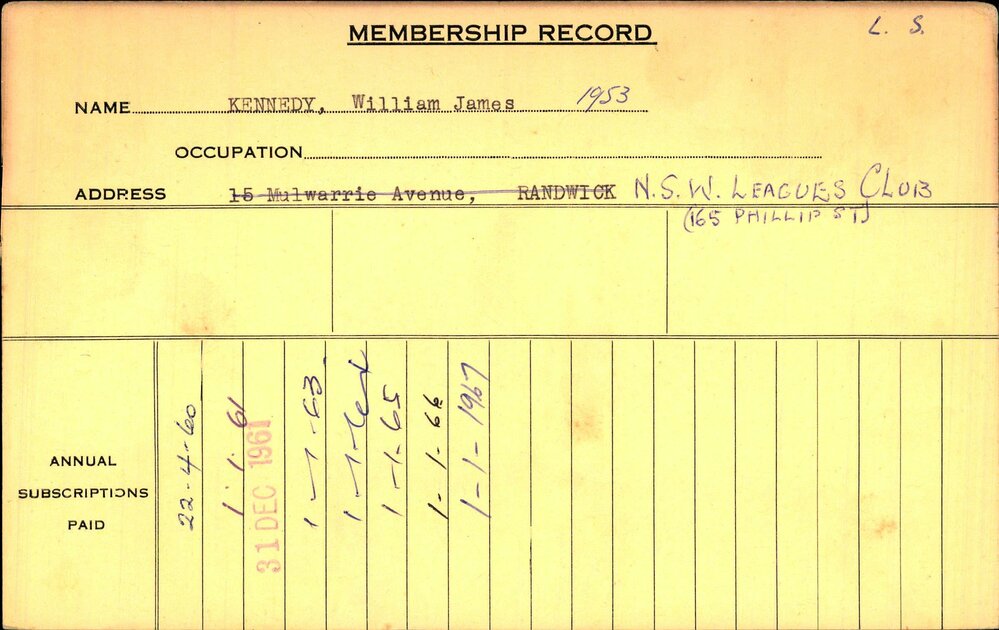 MEMBERSHIP RECORD
L. S.
NAME KENNEDY, William James 1953
OCCUPATION
ADDRESS 15 Mulwarrie Avenue, RANDWICK N.S.W. LEAGUES CLUB
(165 PHILLIP ST)
ANNUAL SUBSCRIPTIONS PAID
22-4-60
1.1.61
31 DEC 1961
1-1-63.
1-1-64
1-1-65
1-1-66
1-1-1967